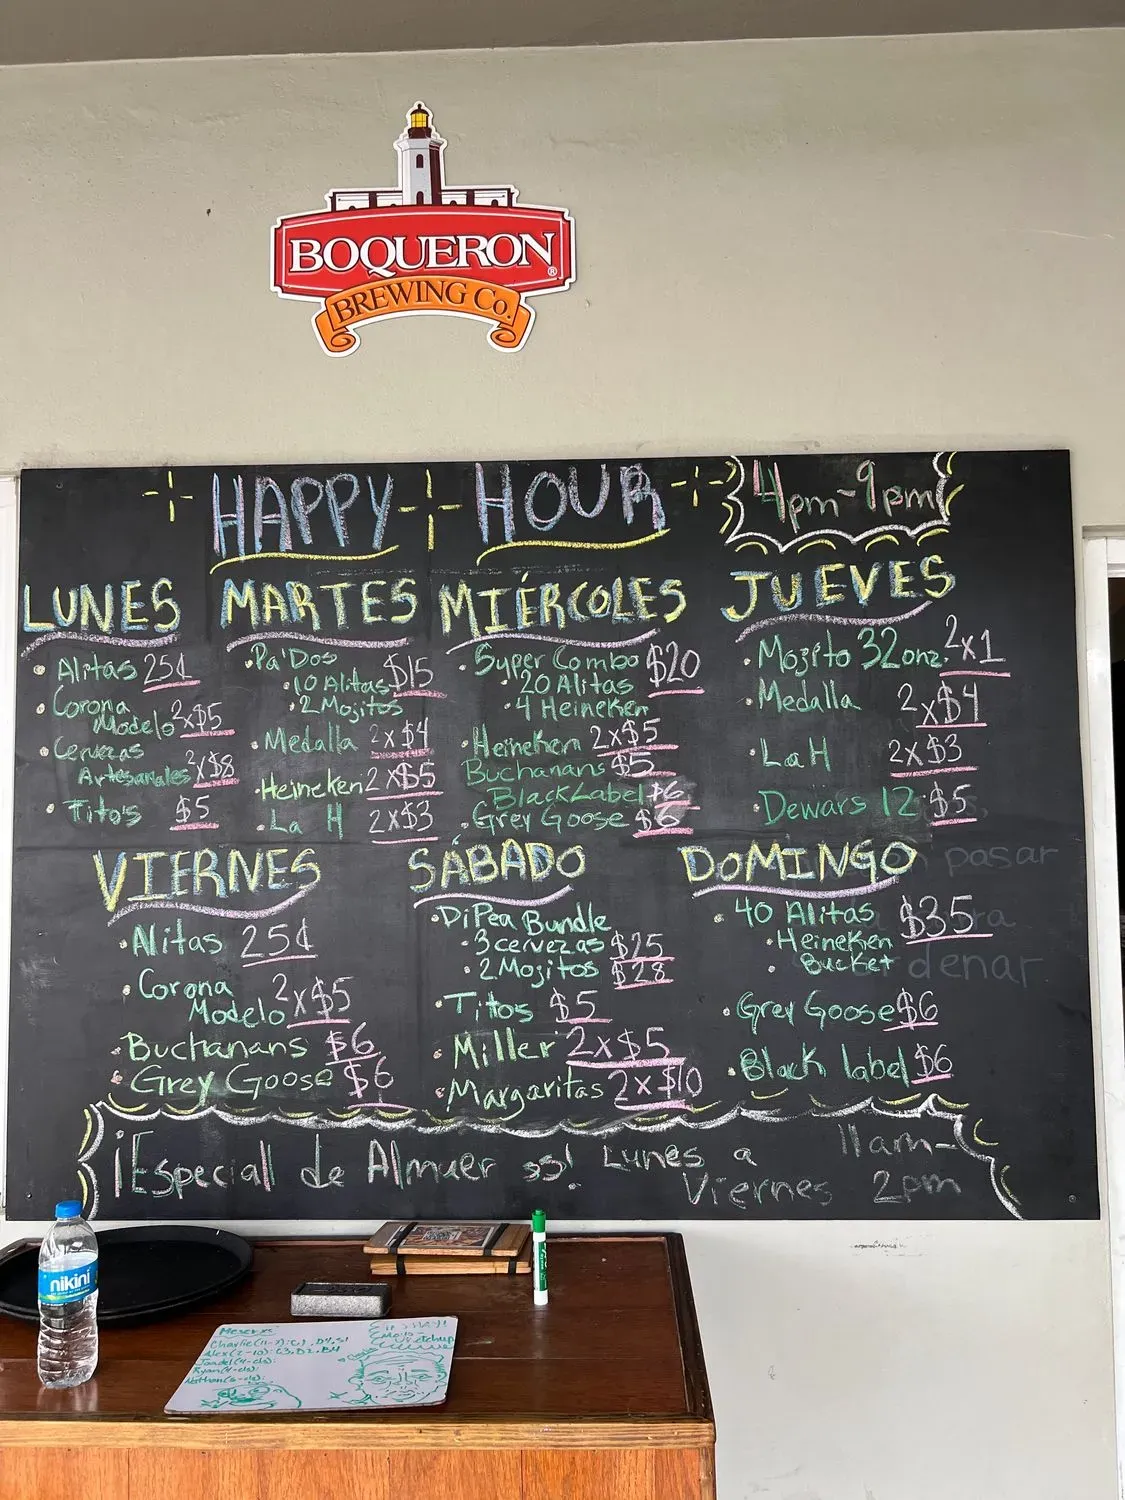 BOQUERON
®
BREWING Co.
HAPPY HOUR
4pm-9pm
LUNES
• Alitas 25¢
• Corona
Modelo 2x$5
• Cervezas
Artesanales 2x$8
• Tito's $5
MARTES
• Pa'Dos $15
• 10 Alitas
• 2 Mojitos
• Medalla 2x$4
• Heineken 2x$5
• La H 2x$3
MIÉRCOLES
• Super Combo $20
• 20 Alitas
• 4 Heineken
• Heineken 2x$5
Buchanans $5
• Black Label $6
• Grey Goose $6
JUEVES
• Mojito 32onz. 2x1
• Medalla 2x$4
• La H 2x$3
• Dewars 12 $5
VIERNES
• Alitas 25¢
• Corona
Modelo 2x$5
• Buchanans $6
• Grey Goose $6
SÁBADO
• DiPea Bundle
• 3 cervezas $25
• 2 Mojitos $28
• Titos $5
• Miller 2x$5
• Margaritas 2x$10
DOMINGO
• 40 Alitas $35
• Heineken
• Bucket
• Grey Goose $6
• Black label $6
pasar
ordenar
¡Especial de Almuer so! Lunes a Viernes 11am-2pm
nikini
Charlie (11-7): C1, D4, S1
Alex (2-10): C3, D2, B4
Joadel (4-cls):
Ryan (4-cls):
Nathan (6-cls):
Ketchup